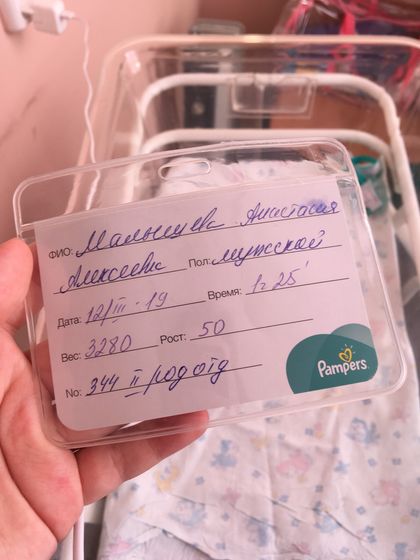 ФИО: Малышева Анастасия
Алексеевна Пол: мужской
Дата: 12/III-19 Время: 1ч 25'
Вес: 3280 Рост: 50
No: 344 II род отд
Pampers